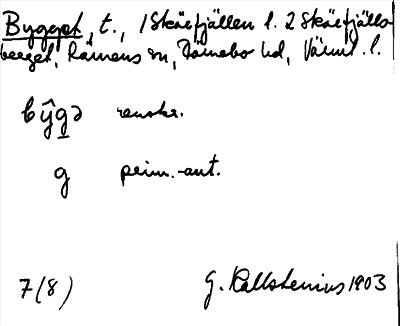 Bygget, t., 1 Skärfjällen l. 2 Skärfjälls-
berget, Rämens sn, Färnebo hd, Värml. l.
by̑gə renskr.
g prim.-ant.
7(8) G. Kallstenius 1903